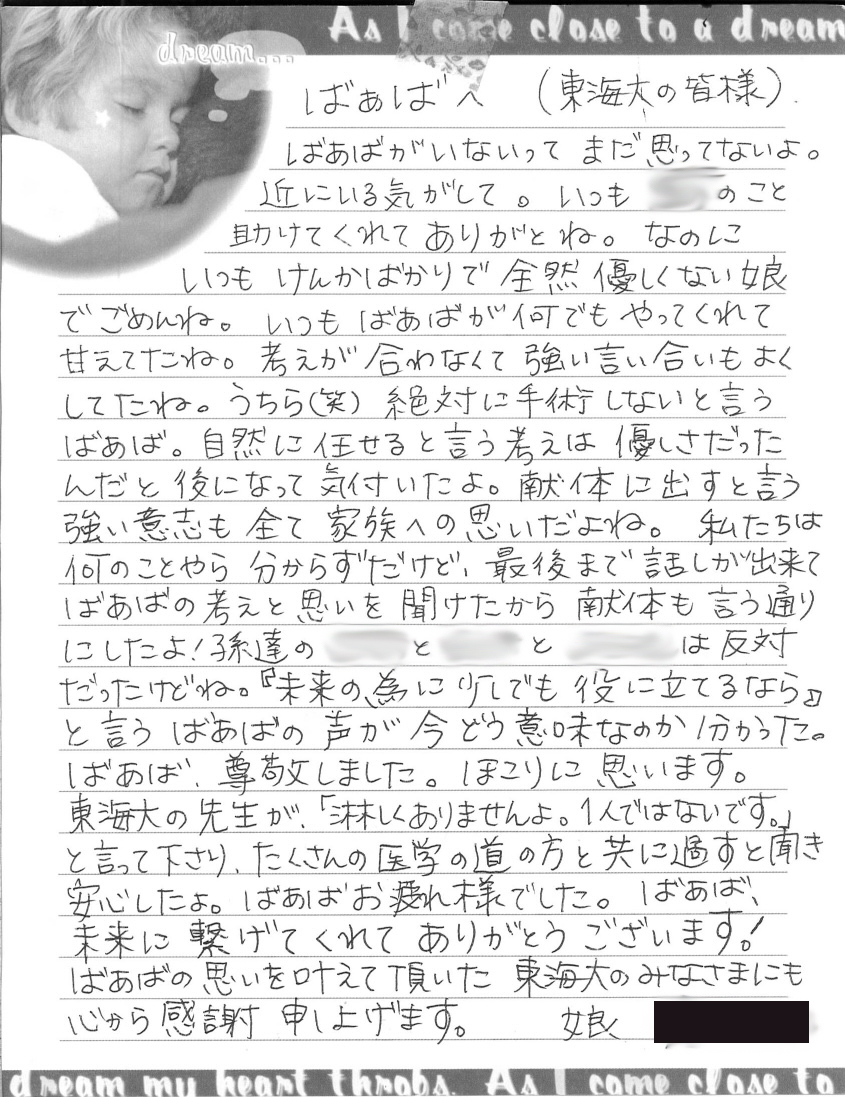 As I come close to a dream
dream...
ばぁばへ （東海大の皆様）
ばあばがいないって まだ思ってないよ。
近にいる気がして。いつも のこと
助けてくれて ありがとね。なのに
いつも けんかばかりで 全然 優しくない娘
で ごめんね。いつも ばあばが何でも やってくれて
甘えてたね。考えが 合わなくて 強い言い合いも よく
してたね。うちら(笑) 絶対に手術しないと言う
ばあば。自然に任せると言う考えは 優しさだった
んだと 後になって 気付いたよ。献体に出すと言う
強い意志も 全て 家族への思いだよね。 私たちは
何のことやら 分からずだけど、最後まで話しが出来て
ばあばの考えと思いを聞けたから 献体も 言う通り
にしたよ！孫達の と と は反対
だったけどね。『未来の為に少しでも 役に立てるなら』
と言う ばあばの声が 今 どう意味なのか 分かった。
ばあば、尊敬しました。ほこりに思います。
東海大の先生が、「淋しくありませんよ。1人ではないです。」
と言って下さり、たくさんの医学の道の方と共に過すと聞き
安心したよ。ばあばお疲れ様でした。ばあば、
未来に 繋げてくれて ありがとうございます！
ばあばの思いを叶えて頂いた 東海大のみなさまにも
心から感謝 申し上げます。 娘
dream my heart throbs. As I come close to